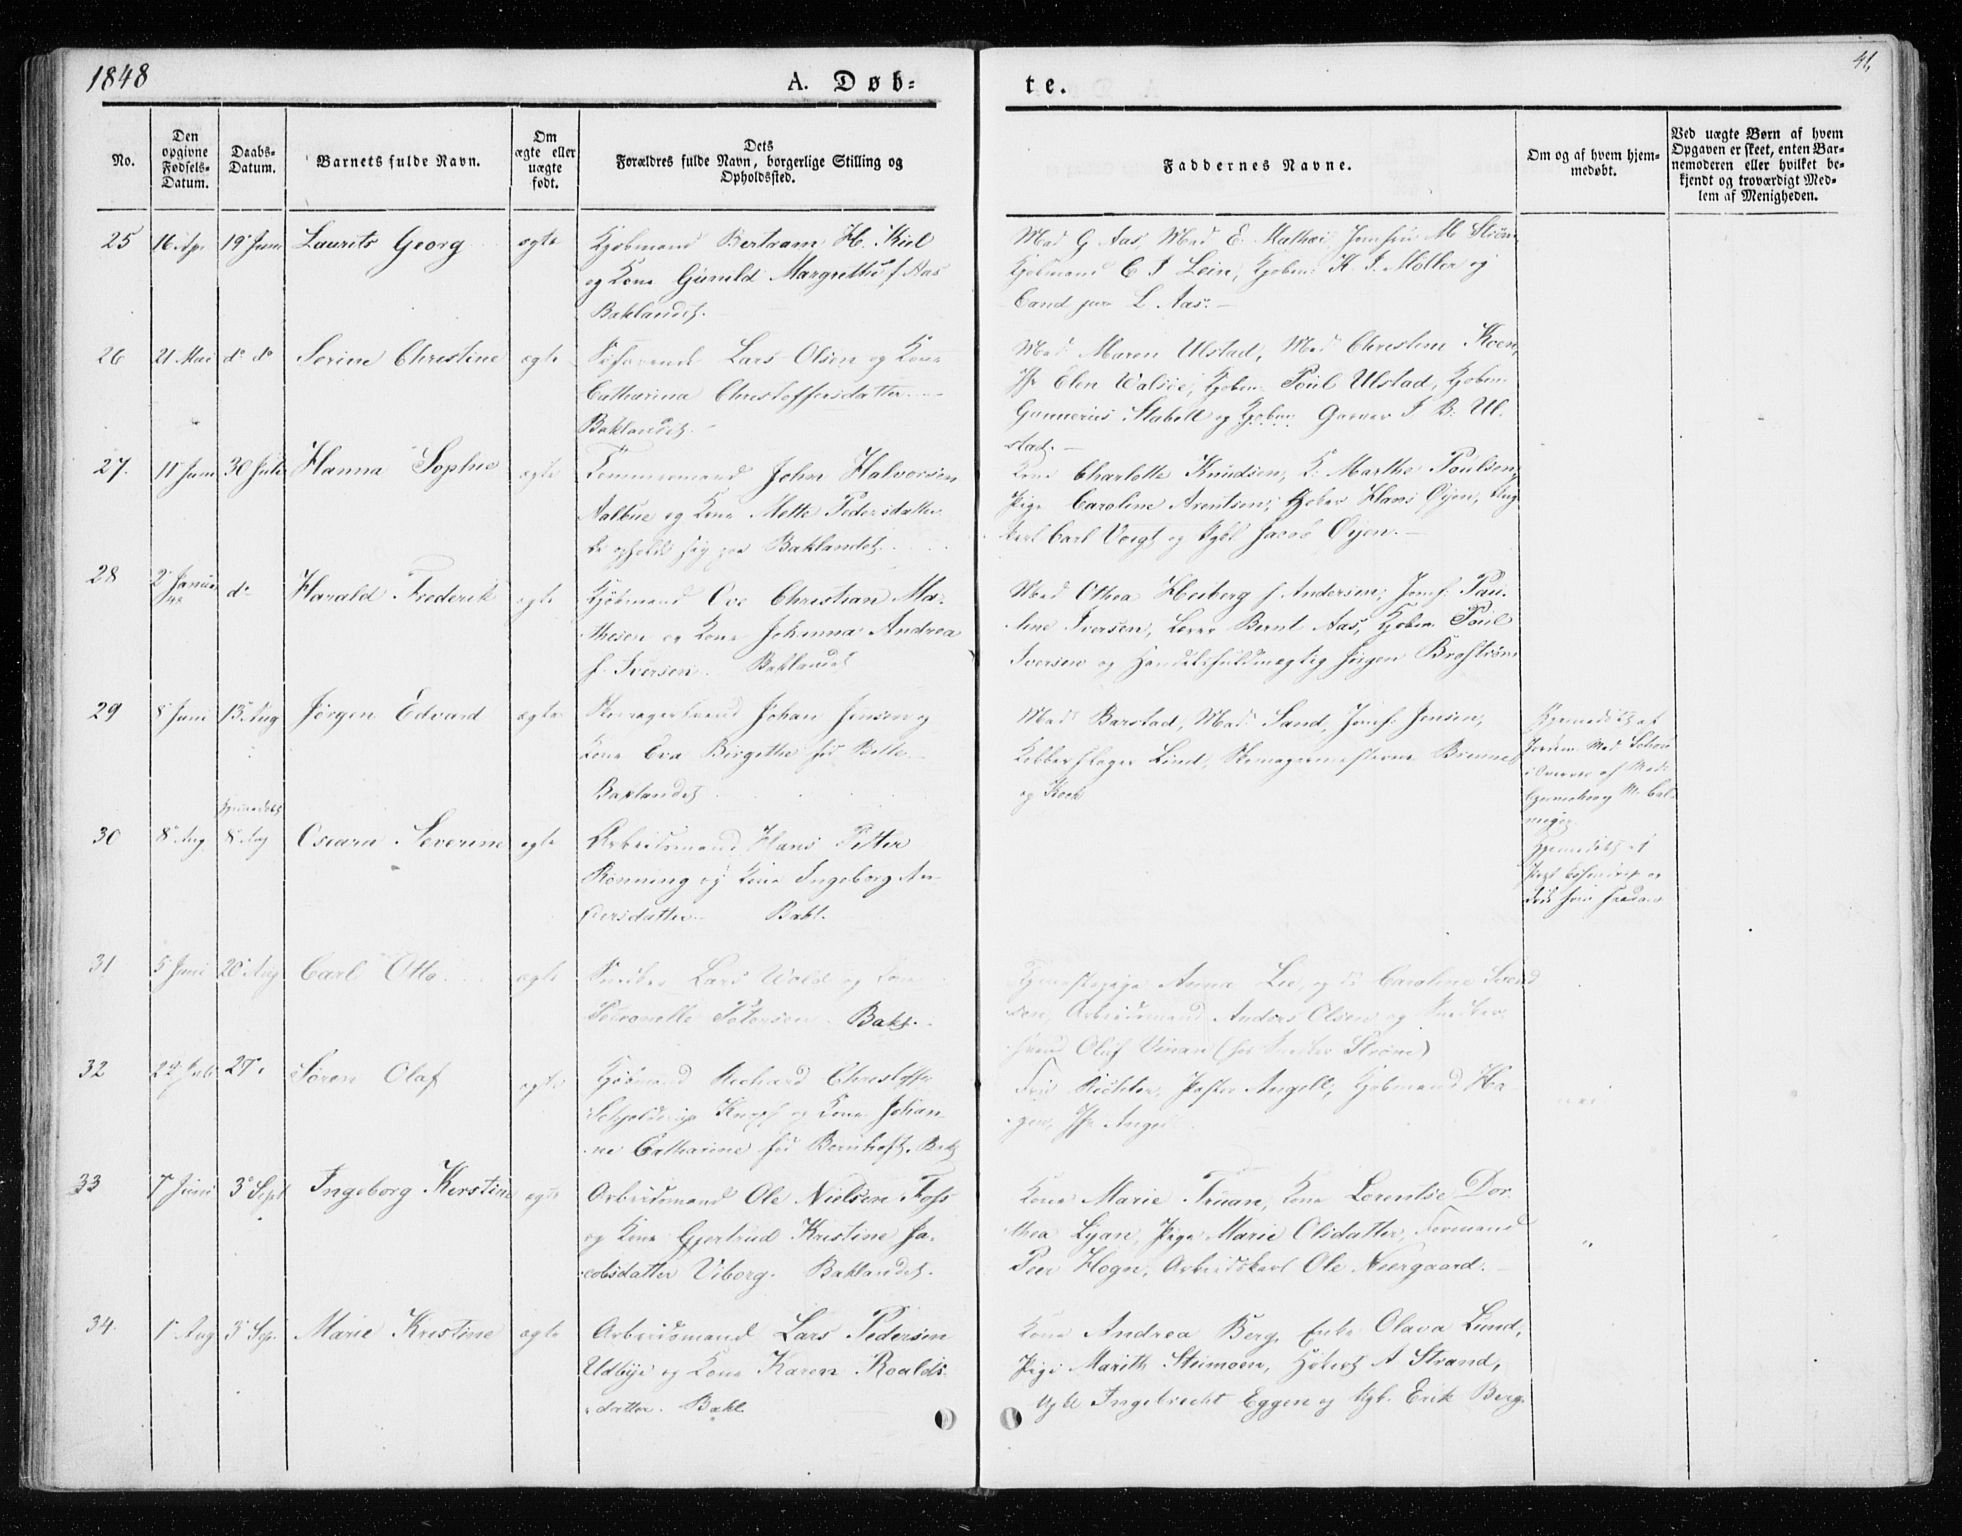 1848
A. Døb=
te.
41,
No.
Den opgivne Fødsels-Datum.
Daabs-Datum.
Barnets fulde Navn.
Om ægte eller uægte født.
Dets
Forældres fulde Navn, borgerlige Stilling og
Opholdssted.
Faddernes Navne.
Om og af hvem hjem-
medøbt.
Ved uægte Børn af hvem
Opgaven er skeet, enten Bar-
nemoderen eller hvilket be-
kjendt og troværdigt Med-
lem af Menigheden.
25 16 Apr 19 Juni Laurits Georg ægte Kjøbmand Bertram H. Kiil
og Kone Gunild Margrethe f. Aas
Baklandet.
Mad G Aas, Mad E. Mathei, Jomfru M
Kjøbmand C J Lein, Kjøbm. K J. Møller og
Cand jur L. Aas.
26 21 Mai do do Serine Christine ægte Søfarende Lars Olsen og Kone
Catharina Christoffersdatter
Baklandet.
Mad Maren Ulstad, Mad Christine Koen,
Jfr Elen Walsøe, Kjøbm. Poul Ulstad, Kjøbm
Gunnerius Stabell og Kjøbm. Garver J B. Ul-
stad.
27. 11 Juni 30 Juli Hanna Sophie ægte Tømmermand John Halvorsen
Aalbue og Kone Mette Pedersdatter
de opholde sig paa Baklandet.
Kone Charlotte Knudsen, K. Marthe Poulsen,
Pige Caroline Arentsen, Hans Øyen, Ung
Karl Carl Voigt og Ygkl Jacob Øyen.
28 2 Januar 48 do Harald Frederik ægte Kjøbmand Ove Christian Ma-
thesen og Kone Johanna Andrea
f. Iversen. Baklandet
Mad Othea Heiberg f. Andersen, Jomf. Pau-
line Iversen, Bernt Aas, Kjøbm. Poul
Iversen og Handelsfuldmægtig Jørgen Broström
29 8 Juni 13 Aug Jørgen Edvard ægte Johan Jensen og
Kone Eva Birgethe
Baklandet
Mad Barstad, Mad. Sand, Jomf. Jensen,
Kobberslager Lind, Skomagermesterne
og Koch
Hjemmedøbt af
Mad
30 8 Aug. Hjemmedøbt 8 Aug Oscara Severine ægte Arbeidsmand Hans Petter
Rønning og Kone Ingeborg An-
dersdatter. Bakl.
Hjemmedøbt af
31 5 Juni 20 Aug Carl Otto ægte Snedker Lars Wold og Kone
Petronelle Petersen. Bakl.
Tjenestepige Anna Lie, og do Caroline Svend
sen, Arbeidsmand Anders Olsen og Snedker
svend Olaf Vinan (hos Snedker Strøm)
32 24 Juli 27. Søren Olaf ægte Kjøbmand Richard Christoffer
Knopf og Kone Johan-
ne Catharine Bernhoft. Bakl
Fru Richter, Angell, Kjøbmand Ha-
gen, Jfr Angel
33 7 Juni 3 Sept Ingeborg Kerstine ægte Arbeidsmand Ole Nielsen Foss
og Kone Gjertrud Kristine Ja-
cobsdatter Viborg. Baklandet.
Kone Marie Truan, Kone Lorentse Dor-
thea Lyan, Pige Marie Olsdatter, Formand
Peer Hogn, Arbeidskarl Ole Neergaard.
"
34. 1 Aug 3 Sep. Marie Kristine ægte Arbeidsmand Lars Pedersen
Udbye og Kone Karen Roalds-
datter. Bakl.
Kone Andrea Berg, Enke Olava Lund,
Pige Marith Steimoen, A Strand,
Ygkl Ingebrecht Eggen og Ygk. Erik Berg.